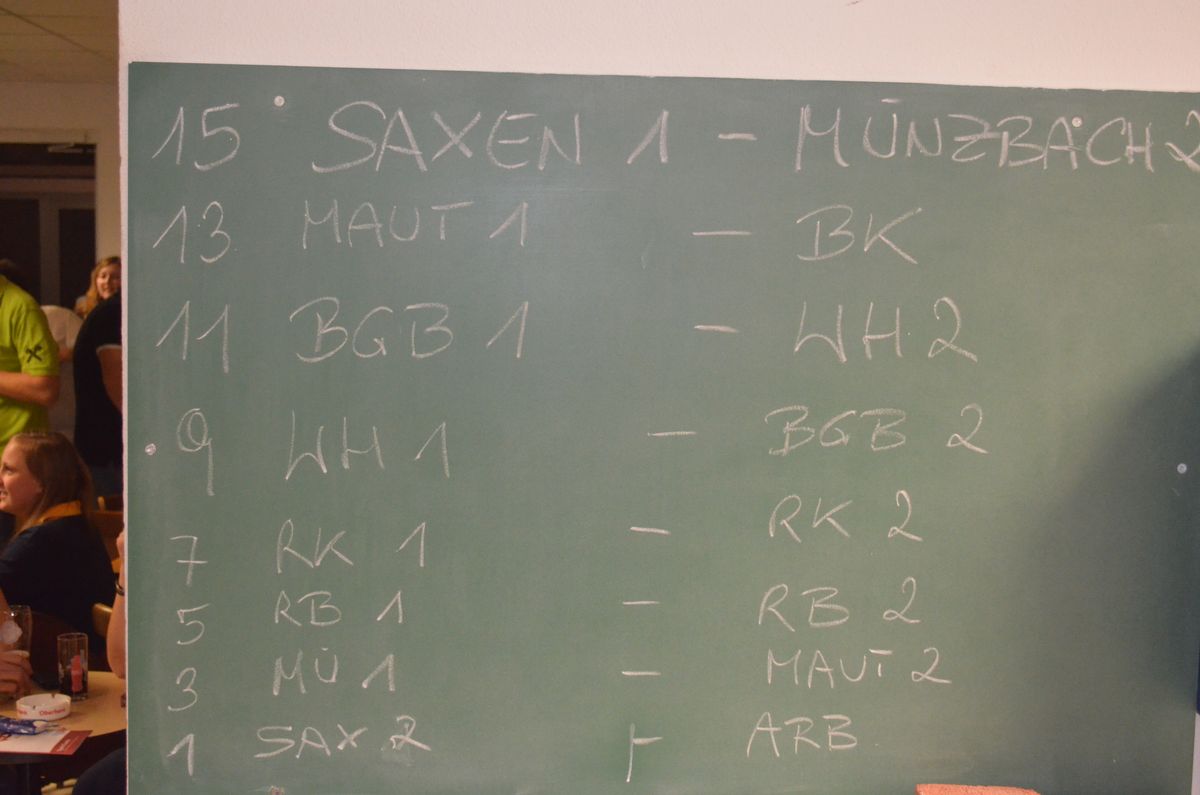 15 SAXEN 1 - MÜNZBACH 2
13 MAUT 1 - BK
11 BGB 1 - WH 2
9 WH 1 - BGB 2
7 RK 1 - RK 2
5 RB 1 - RB 2
3 MÜ 1 - MAUT 2
1 SAX 2 - ARB
Oberbank